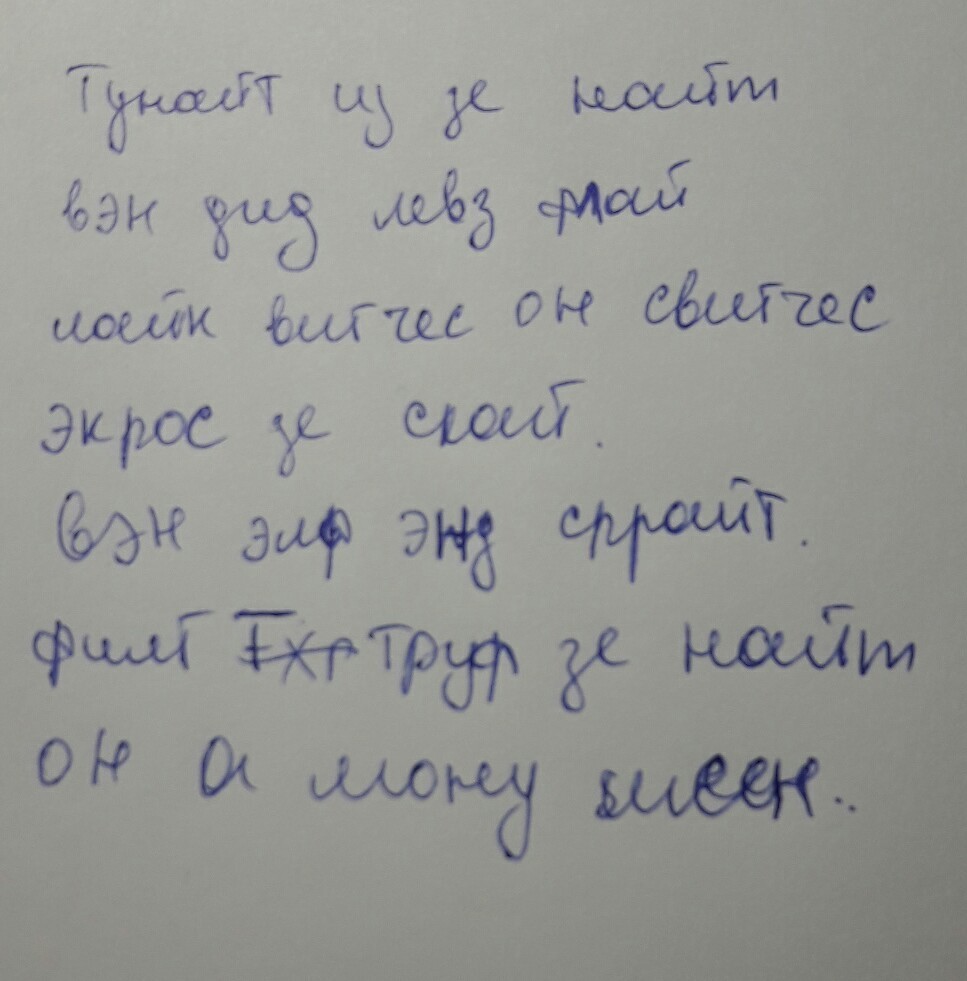 Тунайт из зе найт
вэн дид левз флай
лайк витчес он свитчес
экрос зе скай.
вэн элф энд спрайт.
флит труф зе найт
он а мону